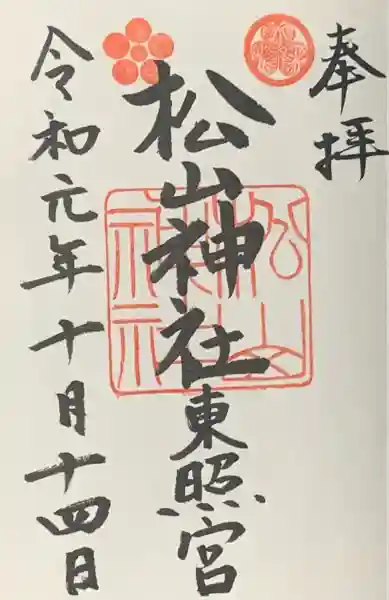 奉拝
松山神社東照宮
松山神社
令和元年十月十四日